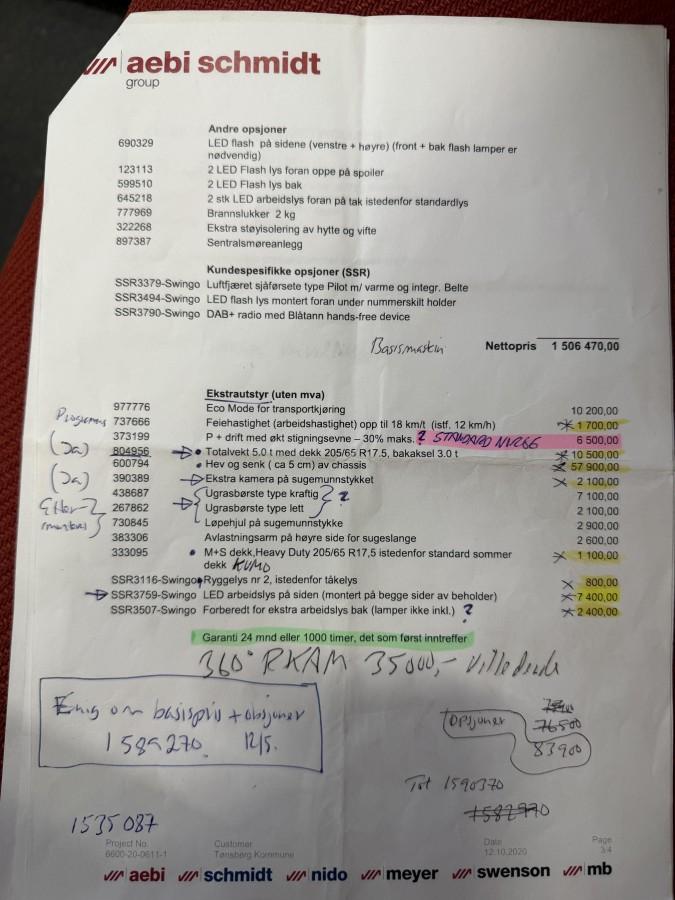 aebi schmidt
group
Andre opsjoner
690329 LED flash på sidene (venstre + høyre) (front + bak flash lamper er
nødvendig)
123113 2 LED Flash lys foran oppe på spoiler
599510 2 LED Flash lys bak
645218 2 stk LED arbeidslys foran på tak istedenfor standardlys
777969 Brannslukker 2 kg
322268 Ekstra støyisolering av hytte og vifte
897387 Sentralsmøreanlegg
Kundespesifikke opsjoner (SSR)
SSR3379-Swingo Luftfjæret sjåførsete type Pilot m/ varme og integr. Belte
SSR3494-Swingo LED flash lys montert foran under nummerskilt holder
SSR3790-Swingo DAB+ radio med Blåtann hands-free device
Basismaskin Nettopris 1 506 470,00
Ekstrautstyr (uten mva)
977776 Eco Mode for transportkjøring 10 200,00
737666 Feiehastighet (arbeidshastighet) opp til 18 km/t (istf. 12 km/h) 1 700,00
373199 P + drift med økt stigningsevne – 30% maks. ? STANDARD 6 500,00
(Ja) 804956 Totalvekt 5.0 t med dekk 205/65 R17.5, bakaksel 3.0 t 10 500,00
600794 Hev og senk ( ca 5 cm) av chassis 57 900,00
(Ja) 390389 Ekstra kamera på sugemunnstykket 2 100,00
438687 Ugrasbørste type kraftig ? 7 100,00
267862 Ugrasbørste type lett 2 100,00
730845 Løpehjul på sugemunnstykke 2 900,00
383306 Avlastningsarm på høyre side for sugeslange 2 600,00
333095 M+S dekk,Heavy Duty 205/65 R17,5 istedenfor standard sommer 1 100,00
dekk
SSR3116-Swingo Ryggelys nr 2, istedenfor tåkelys 800,00
SSR3759-Swingo LED arbeidslys på siden (montert på begge sider av beholder) 7 400,00
SSR3507-Swingo Forberedt for ekstra arbeidslys bak (lamper ikke inkl.) ? 2 400,00
Garanti 24 mnd eller 1000 timer, det som først inntreffer
360° RKAM 35000,-
Enig om basispris + obsjoner
1 589 270 12/5.
opsjoner
76500
83900
Tot 1590370
1535 087
Project No. Customer Date Page
6600-20-0611-1 Tønsberg Kommune 12.10.2020 3/4
aebi schmidt nido meyer swenson mb